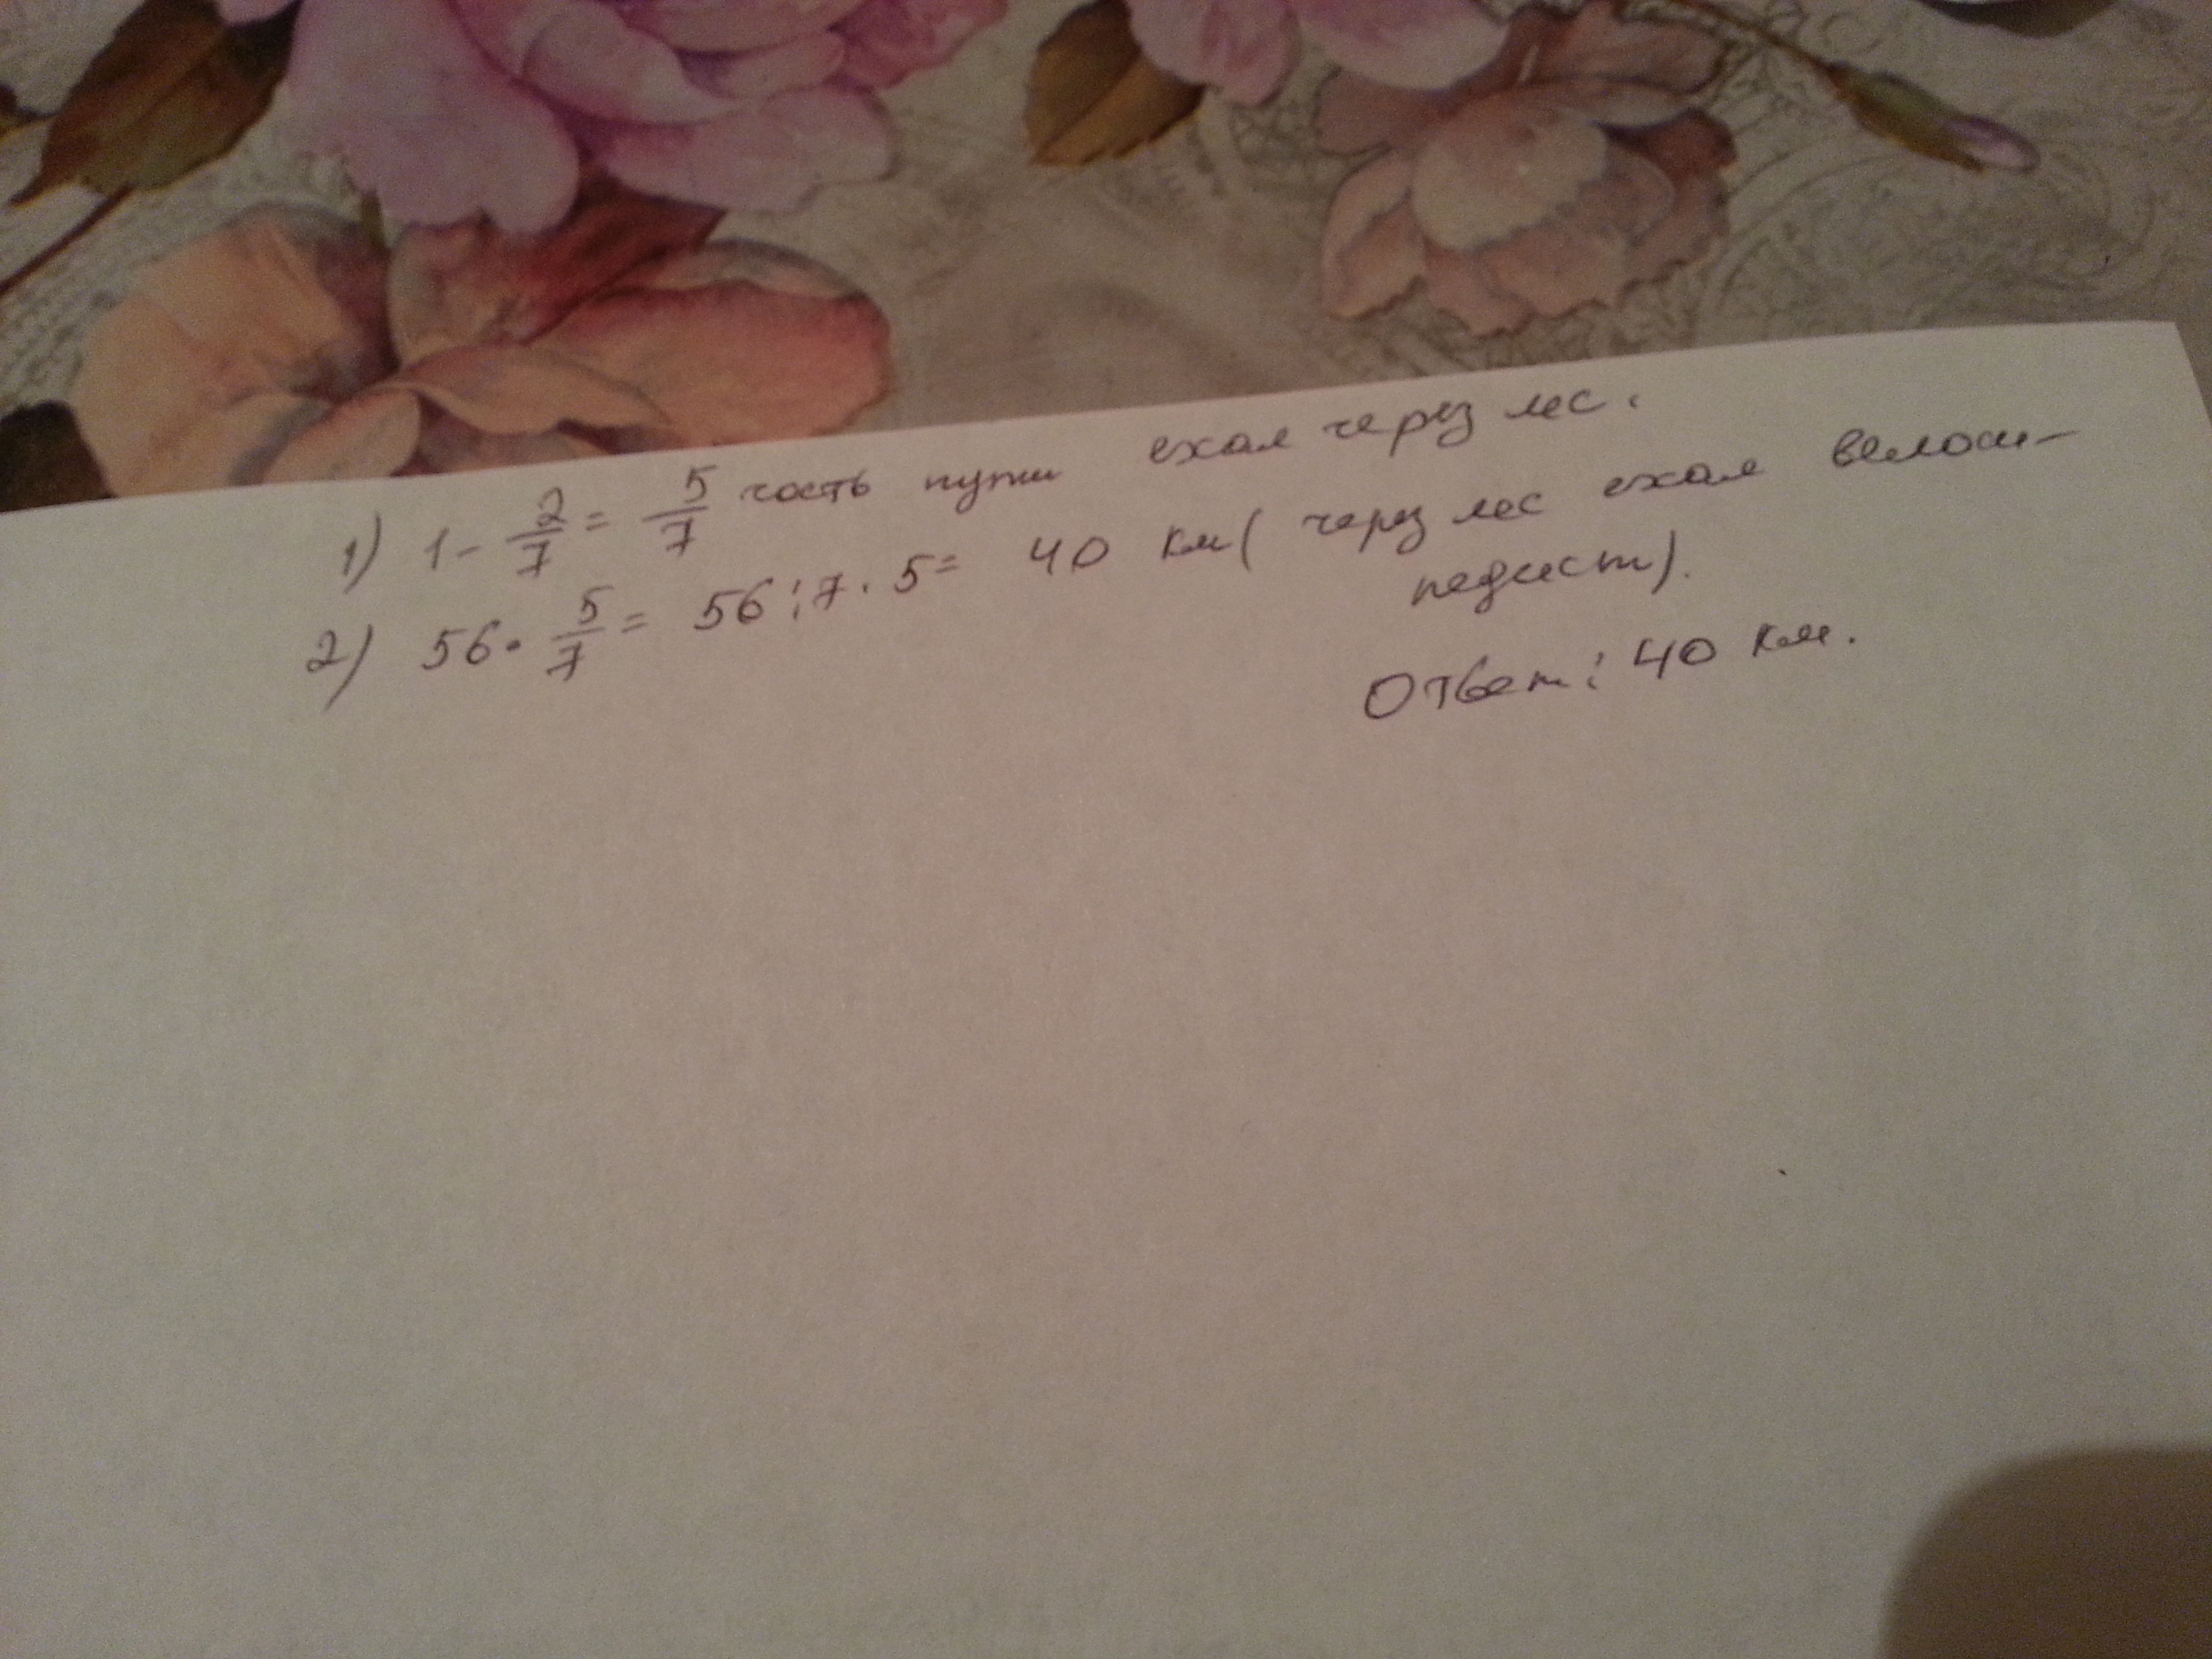 1) 1 - 2/7 = 5/7 часть пути ехал через лес.
2) 56 · 5/7 = 56 : 7 · 5 = 40 км ( через лес ехал велоси-
педист).
Ответ : 40 км.